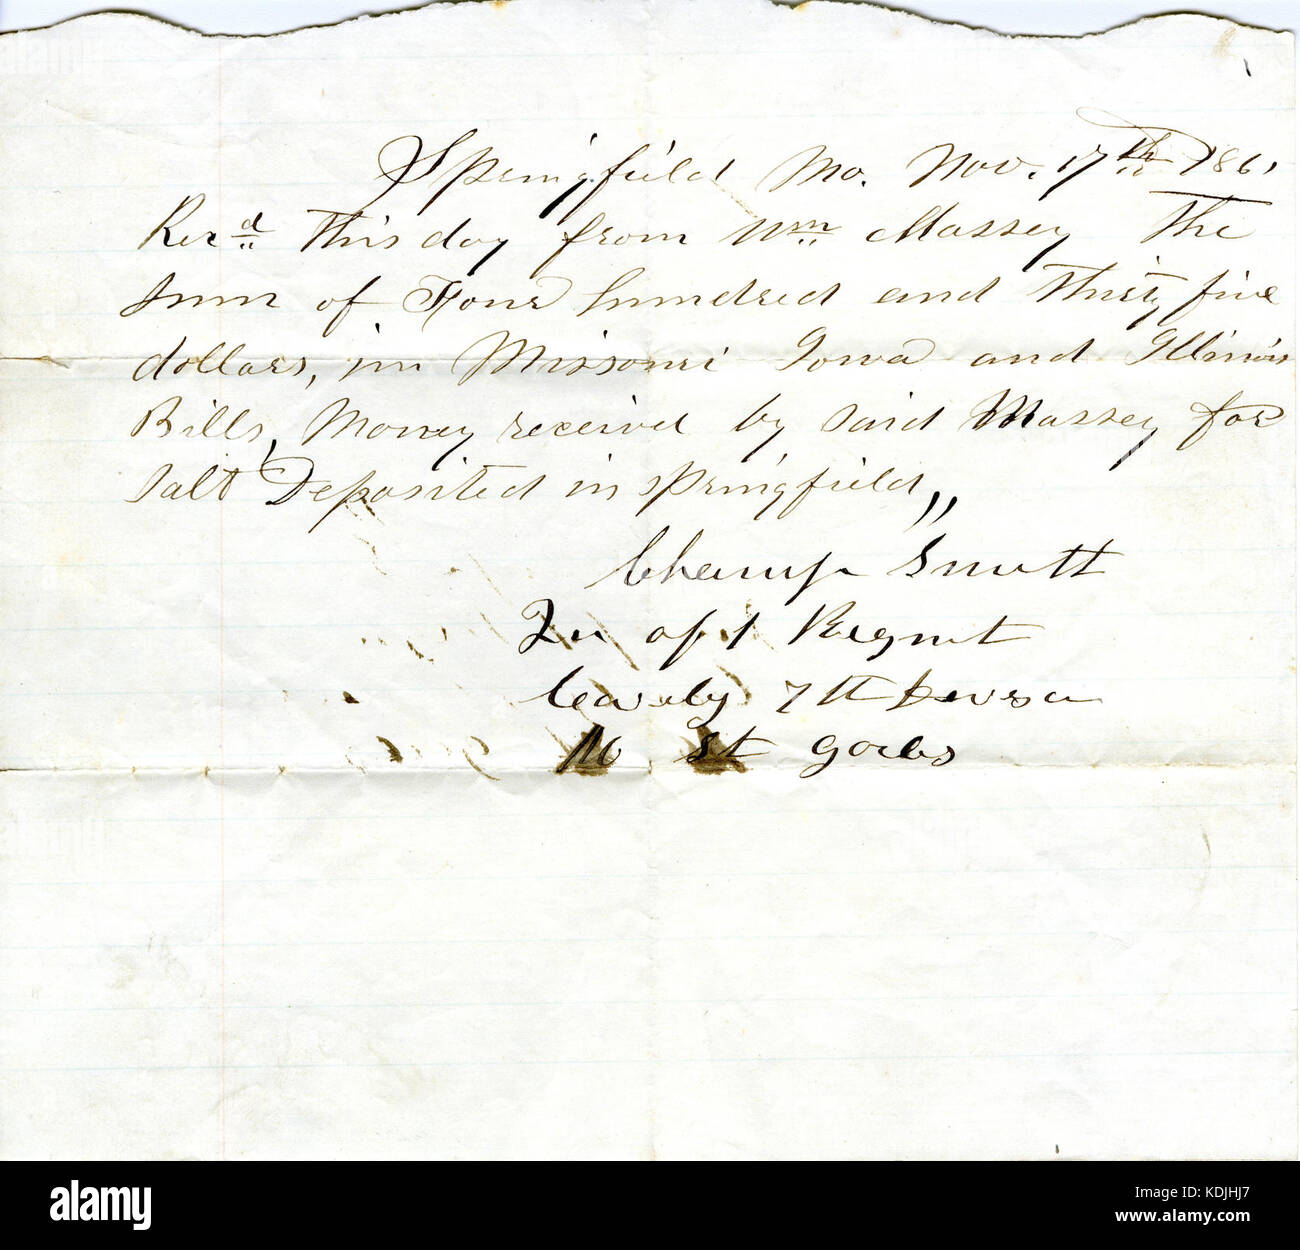 Springfield Mo. Nov. 17th 1861
Recd This day from Wm Massey The
sum of Four hundred and Thirty five
dollars, in Missouri Iowa and Illinois
Bills, Money received by said Massey for
salt Deposited in springfield,,
Champ Smith
of 1 Regmt
Cavaly 7th
Mo St
alamy stock photo
KDJHJ7
www.alamy.com